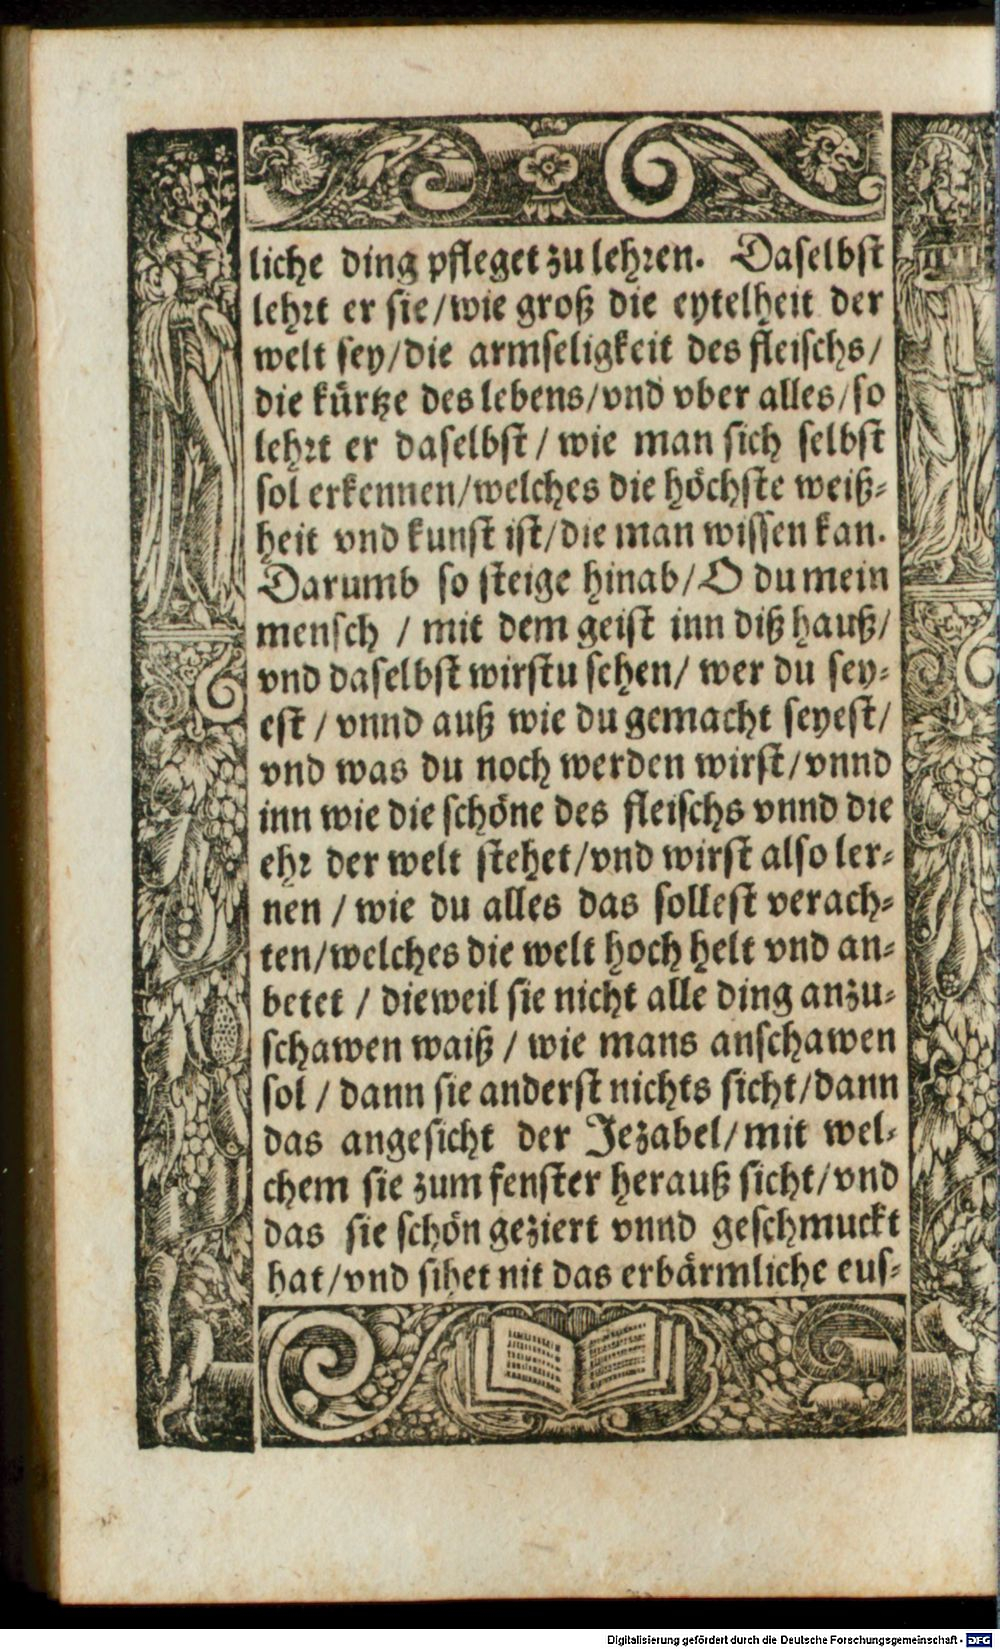 liche ding pfleget zu lehren. Daselbst
lehrt er sie/wie groß die eytelheit der
welt sey/die armseligkeit des fleischs/
die kürtze des lebens/vnd vber alles/so
lehrt er daselbst/ wie man sich selbst
sol erkennen/welches die höchste weiß-
heit vnd kunst ist/die man wissen kan.
Darumb so steige hinab/O du mein
mensch / mit dem geist inn diß hauß/
vnd daselbst wirstu sehen/ wer du sey-
est / vnnd auß wie du gemacht seyest/
vnd was du noch werden wirst/vnnd
inn wie die schöne des fleischs vnnd die
ehr der welt stehet/vnd wirst also ler-
nen / wie du alles das sollest verach-
ten/welches die welt hoch helt vnd an-
betet / dieweil sie nicht alle ding anzu-
schawen waiß / wie mans anschawen
sol / dann sie anderst nichts sicht/dann
das angesicht der Jezabel/mit wel-
chem sie zum fenster herauß sicht/vnd
das sie schön geziert vnnd geschmuckt
hat/vnd sihet nit das erbärmliche eus-
Digitalisierung gefördert durch die Deutsche Forschungsgemeinschaft - DFG